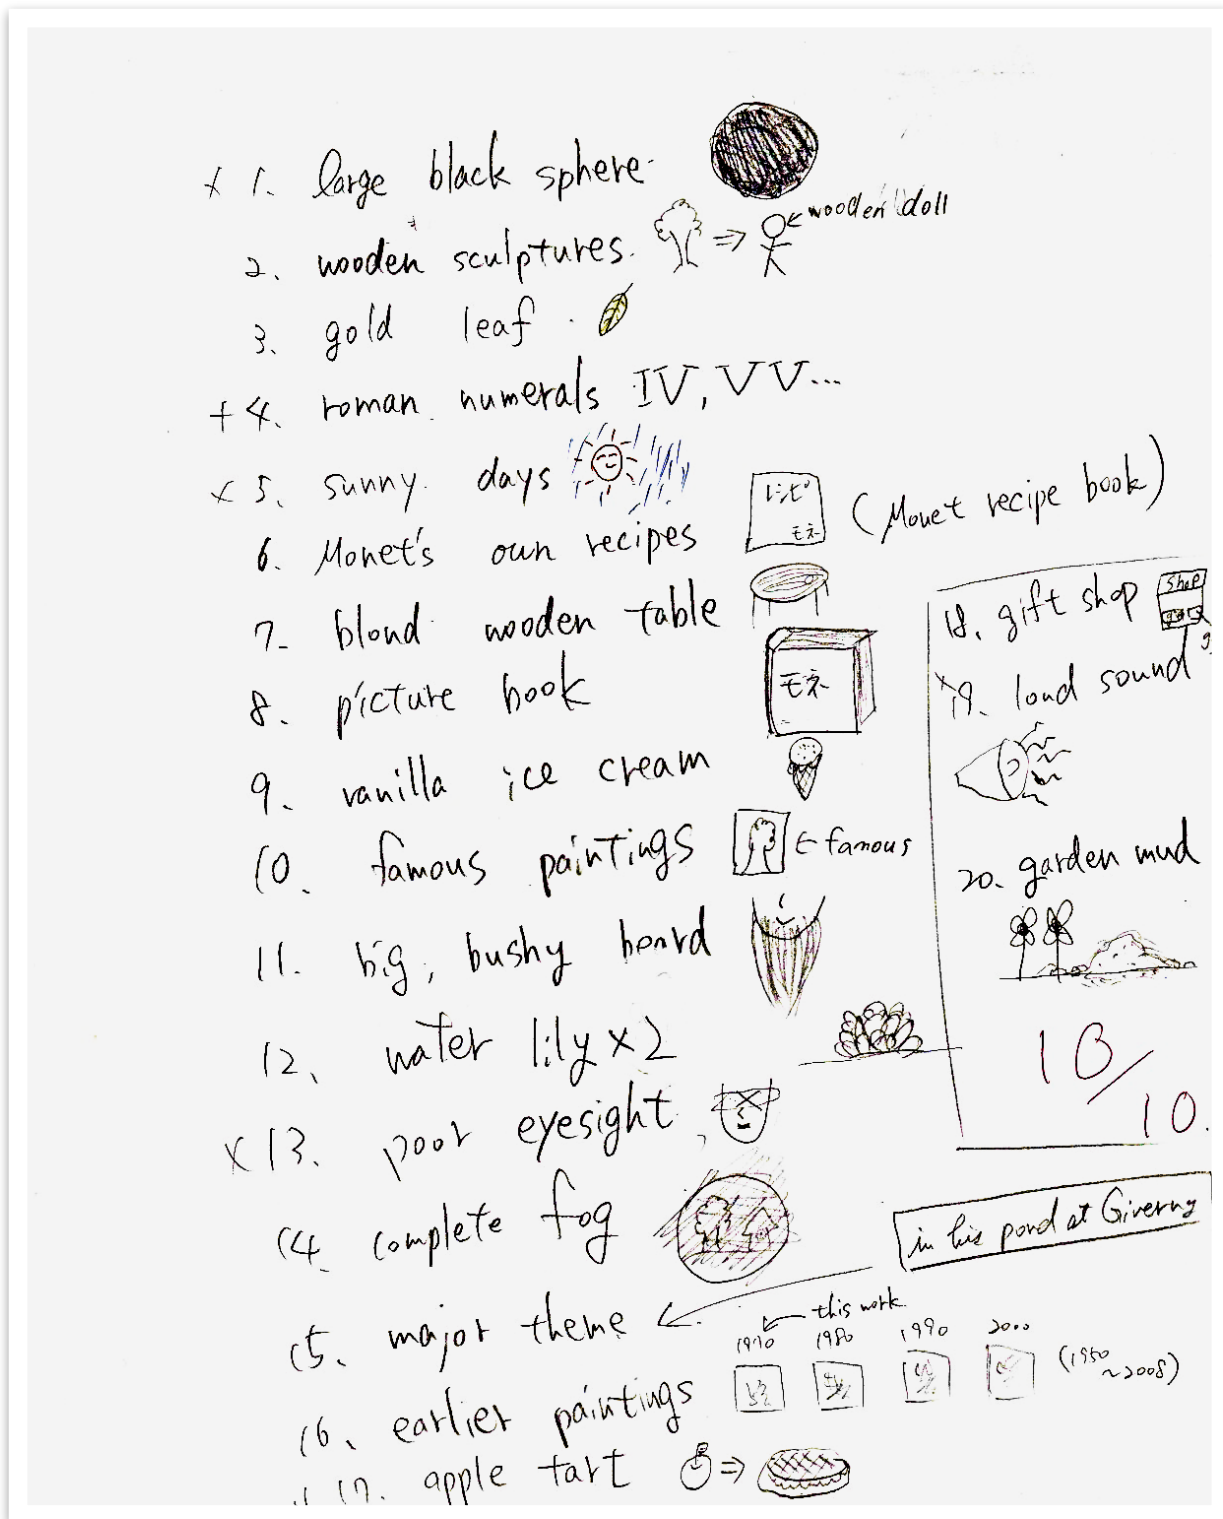 x 1. large black sphere.
2. wooden sculptures. ⇒ ← wooden doll
3. gold leaf.
+ 4. roman numerals IV, VV...
x 5. sunny days
6. Monet's own recipes レシピ モネ (Monet recipe book)
7. blond wooden table
8. picture book モネ
9. vanilla ice cream
10. famous paintings ← famous
11. big, bushy beard
12. water lily x2
x 13. poor eyesight
14. complete fog
15. major theme ← in his pond at Giverny
16. earlier paintings 1970 ← this work. 1980 1990 2000 (1950 ~2008)
17. apple tart ⇒
18. gift shop shop
x 19. loud sound
20. garden mud
10/10.